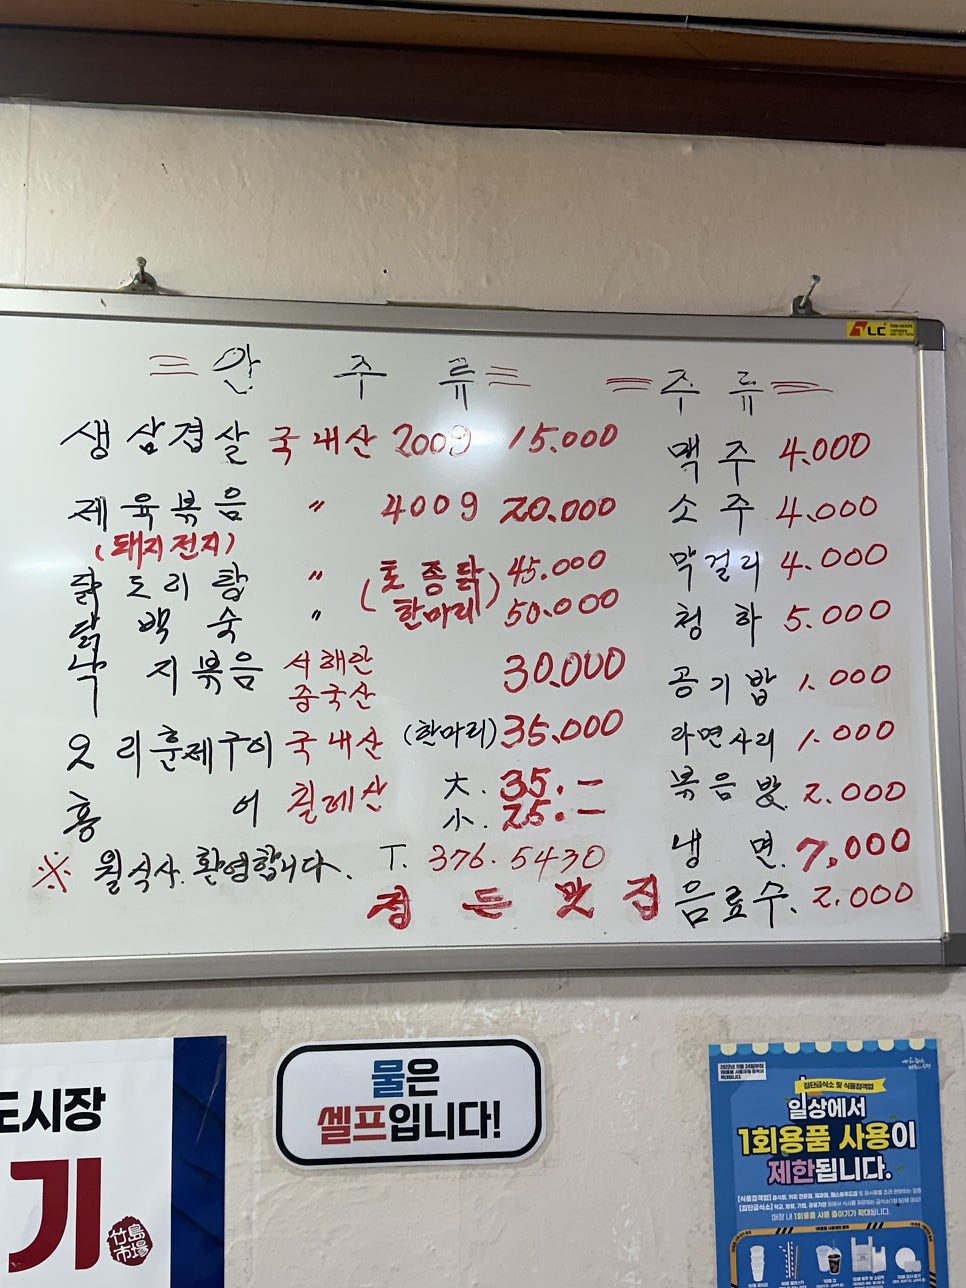 안 주 류
생삼겹살 국내산 200g 15.000
제육볶음 〃 400g 20.000
(돼지전지)
닭도리탕 〃 (토종닭 45.000
닭백숙 〃 한마리) 50.000
낙지볶음 서해안 30.000
중국산
오리훈제구이 국내산 (한마리) 35.000
홍어 칠레산 大. 35.-
小. 25.-
※ 월식사. 환영합니다. T. 376.5430
정든맛집
주류
맥주 4.000
소주 4.000
막걸리 4.000
청하 5.000
공기밥 1.000
라면사리 1.000
볶음밥 2.000
냉면. 7,000
음료수. 2.000
LC
도시장
기
竹島
市場
물은
셀프입니다!
2022년 11월 24일부터
집단급식소 및 식품접객업
일상에서
1회용품 사용이
제한됩니다.
매장 내 1회용품 사용 줄이기가 확대됩니다.